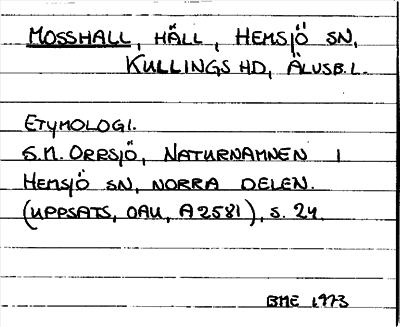 MOSSHALL, HÄLL, HEMSJÖ SN,
KULLINGS HD, ÄLVSB.L.
ETYMOLOGI.
S.N. ORRSJÖ, NATURNAMNEN I
HEMSJÖ SN, NORRA DELEN.
(UPPSATS, OAU, A 2581), S. 24.
BME 1973